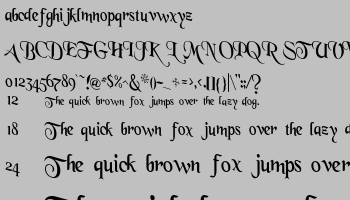 abcdefghijklmnopqrstuvwxyz
ABCDEFGHIJKLMNOPQRSTUVW
0123456789`~!@#$%^&*()-_+=><.[]{}|\":;/?
12 The quick brown fox jumps over the lazy dog.
18 The quick brown fox jumps over the lazy d
24 The quick brown fox jumps over